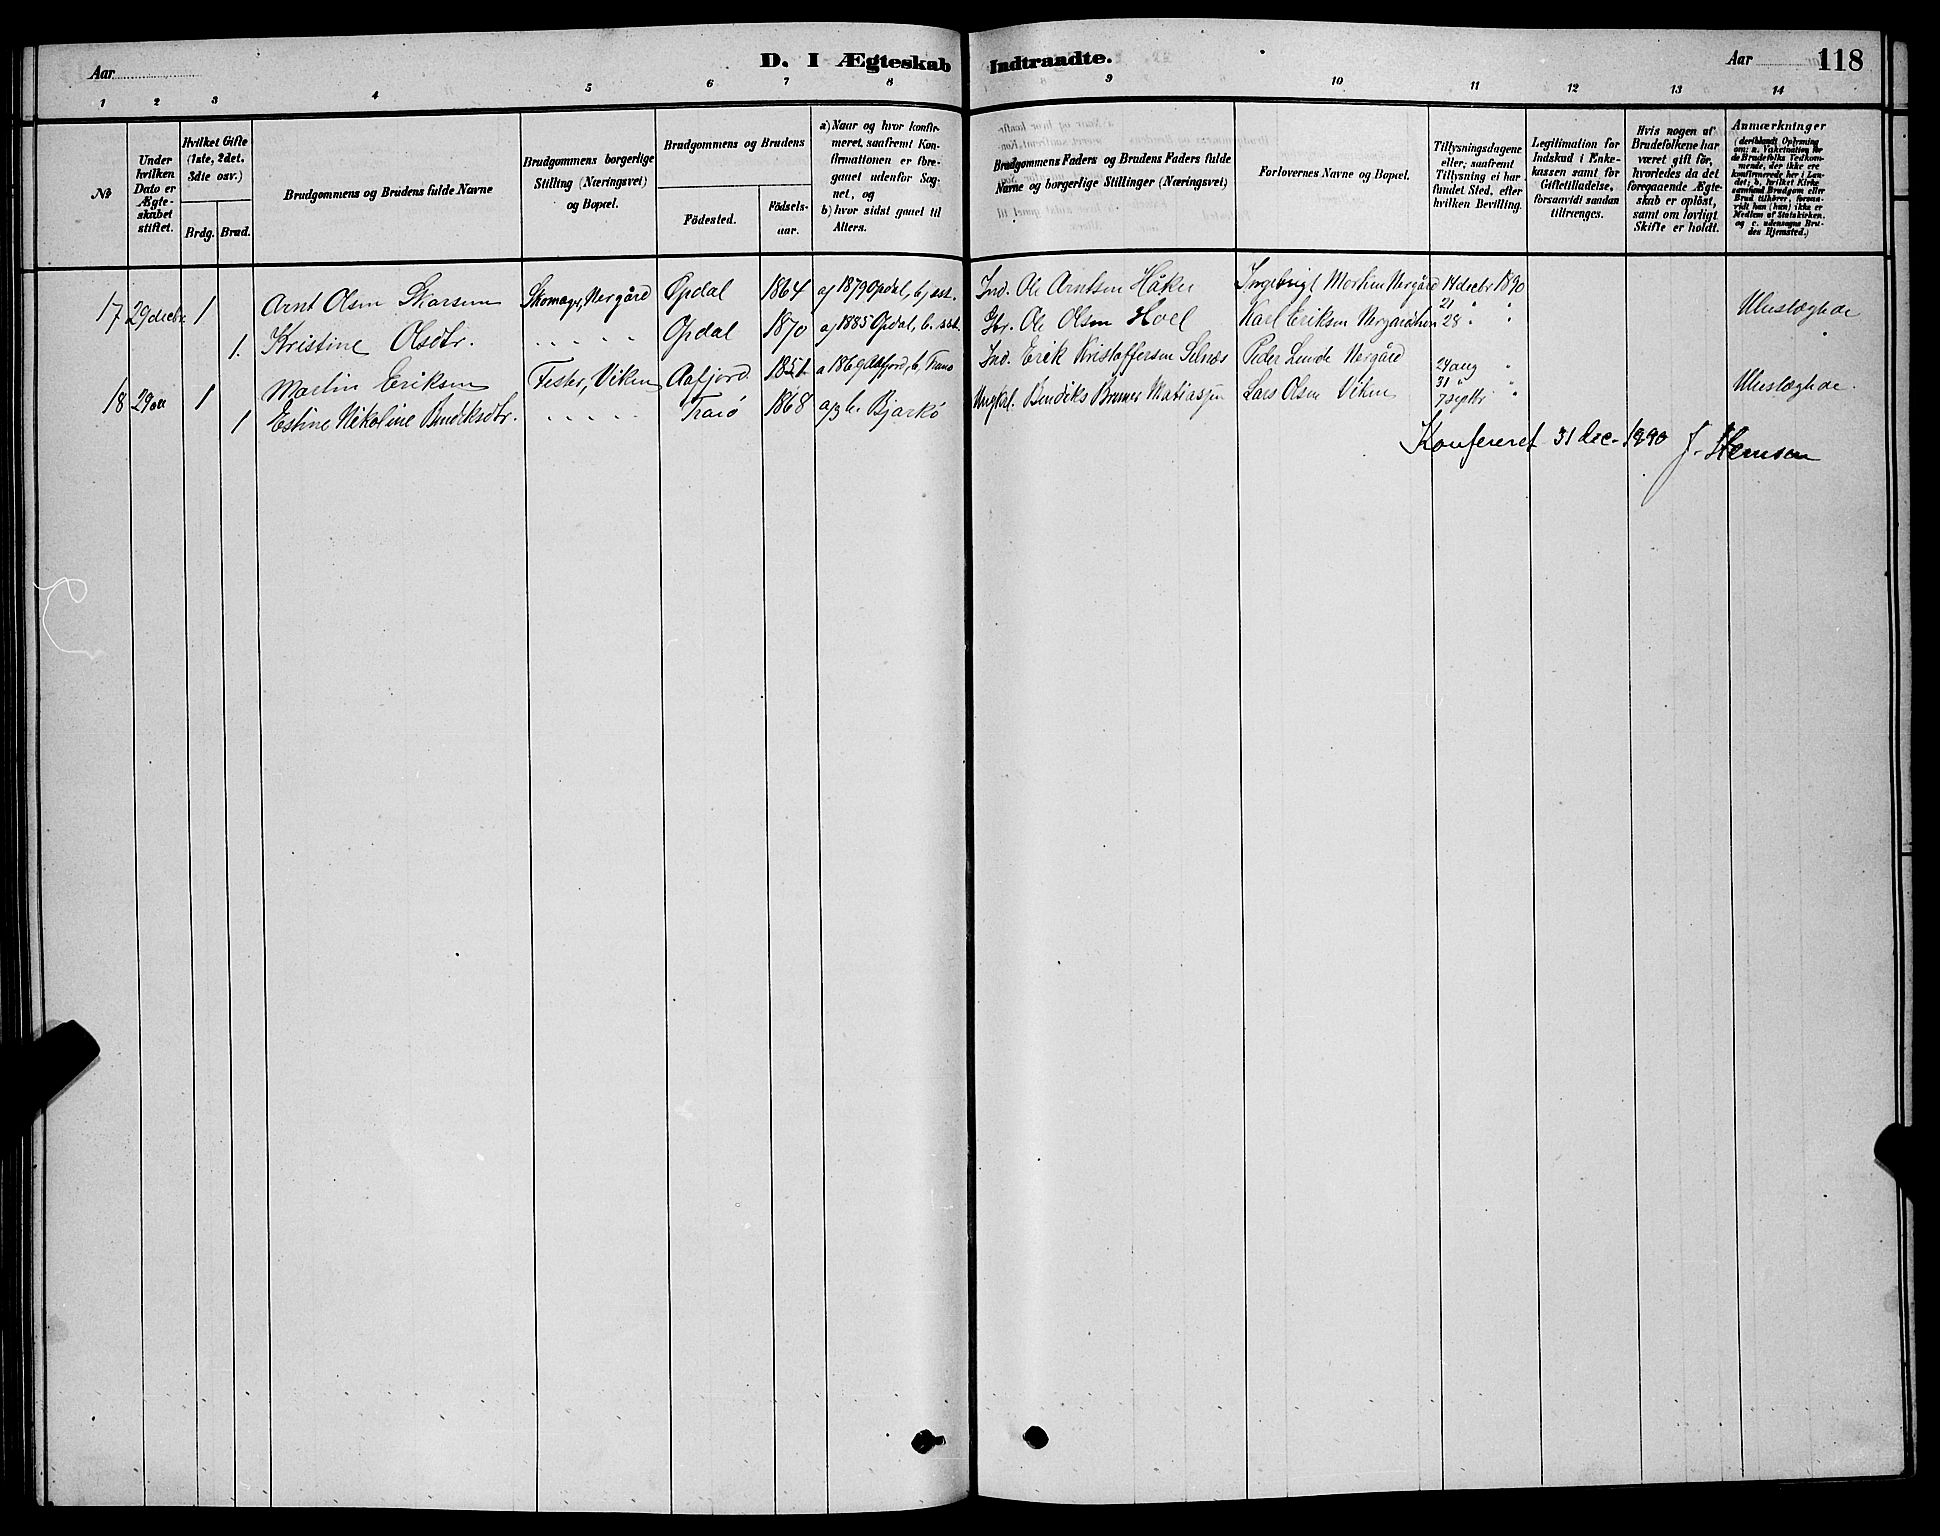 D. I Ægteskab Indtraadte.
Aar
Aar
118
1 2 3 4 5 6 7 8 9 10 11 12 13 14
No
Under hvilken Dato er Ægteskabet stiftet.
Hvilket Gifte (1ste, 2det, 3die osv.)
Brdg. Brud.
Brudgommens og Brudens fulde Navne
Brudgommens borgerlige Stilling (Næringsvei) og Bopæl.
Brudgommens og Brudens
Födested.
Födsels-aar.
a) Naar og hvor konfirmeret, saafremt Konfirmationen er foreganet udenfor Sognet, og
b) hvor sidst ganet til Alters.
Brudgommens Faders og Brudens Faders fulde Navne og borgerlige Stillinger (Næringsvei)
Forlovernes Navne og Bopæl.
Tillysningsdagene eller; saafremt Tillysning ei har fundet Sted, efter hvilken Bevilling.
Legitimation for Indskud i Enkekassen samt for Giftetilladelse, forsaavidt saadan tiltrænges.
Hvis nogen af Brudefolkene har været gift för, hvorledes da det foregaaende Ægteskab er oplöst, samt om lovligt Skifte er holdt.
Anmærkninger
17 29 decbr 1 Arnt Olsen Skorsem Skomager, Nergård Opdal 1864 a) 1879 Opdal, b) sst. Ind. Ole Arntsen Håker Ingebrigt Morten Nergård 14 decbr 1890
1. Kristine Olsdtr. " " " " " Opdal 1870 a) 1885 Opdal, b. sst. Gbr. Ole Olsen Hoel Karl Eriksen Nergårdshen 21 " " 28 " " Ubeslægtede
18 29 okt 1 Martin Eriksen Fester, Viken Aafjord 1851 a 1869 Aafjord, b, Tranö Ind. Erik Kristoffersen Selnæs Peder Lunde Nergård 24 aug "
1 Estine Nikoline Bendiksdtr. " " " " Tranö 1868 a) b. Bjarkö Ungkl. Bendiks Brunes Matiassen Lars Olsen Viken 31 " " 7 septbr " Ubeslægtede.
Konfereret 31 dec. 1890 J. Stenson